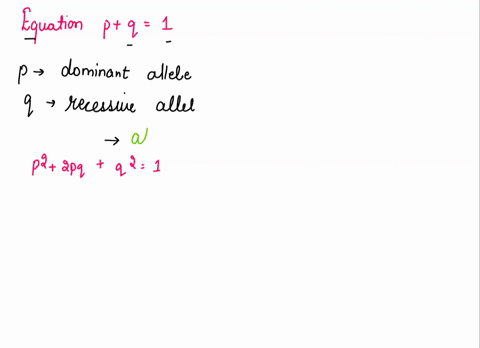 Equation p+q = 1
p → dominant allele
q → recessive allel
→ a
p²+ 2pq + q² = 1